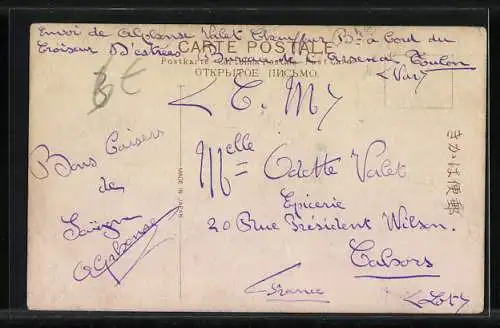 Envoi de Alphonse Valet Chauffeur Bté à bord du
Croiseur D'estrées Bureau de l'Arsenal Toulon
(Var)
CARTE POSTALE
Postkarte
ОТКРЫТОЕ ПИСЬМО.
(C. M)
Bons Baisers
de
Saïgon
Alphonse
MADE IN JAPAN
Melle Odette Valet
Epicerie
20 Rue Président Wilson.
Cahors
(Lot)
France
きかは便郵